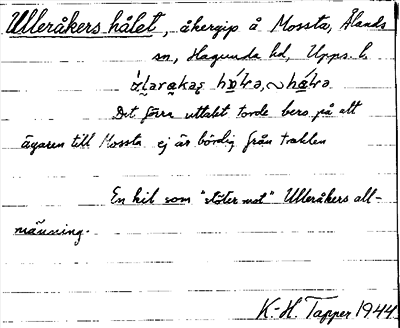 Ulleråkers hålet, åkergip å Mossta, Ålands
sn, Hagunda hd, Upps. l.
Det förra uttalet torde bero på att
ägaren till Mossta ej är bördig från trakten
En kil som "stöter mot" Ulleråkers all-
männing.
K.-H. Tapper 1944.